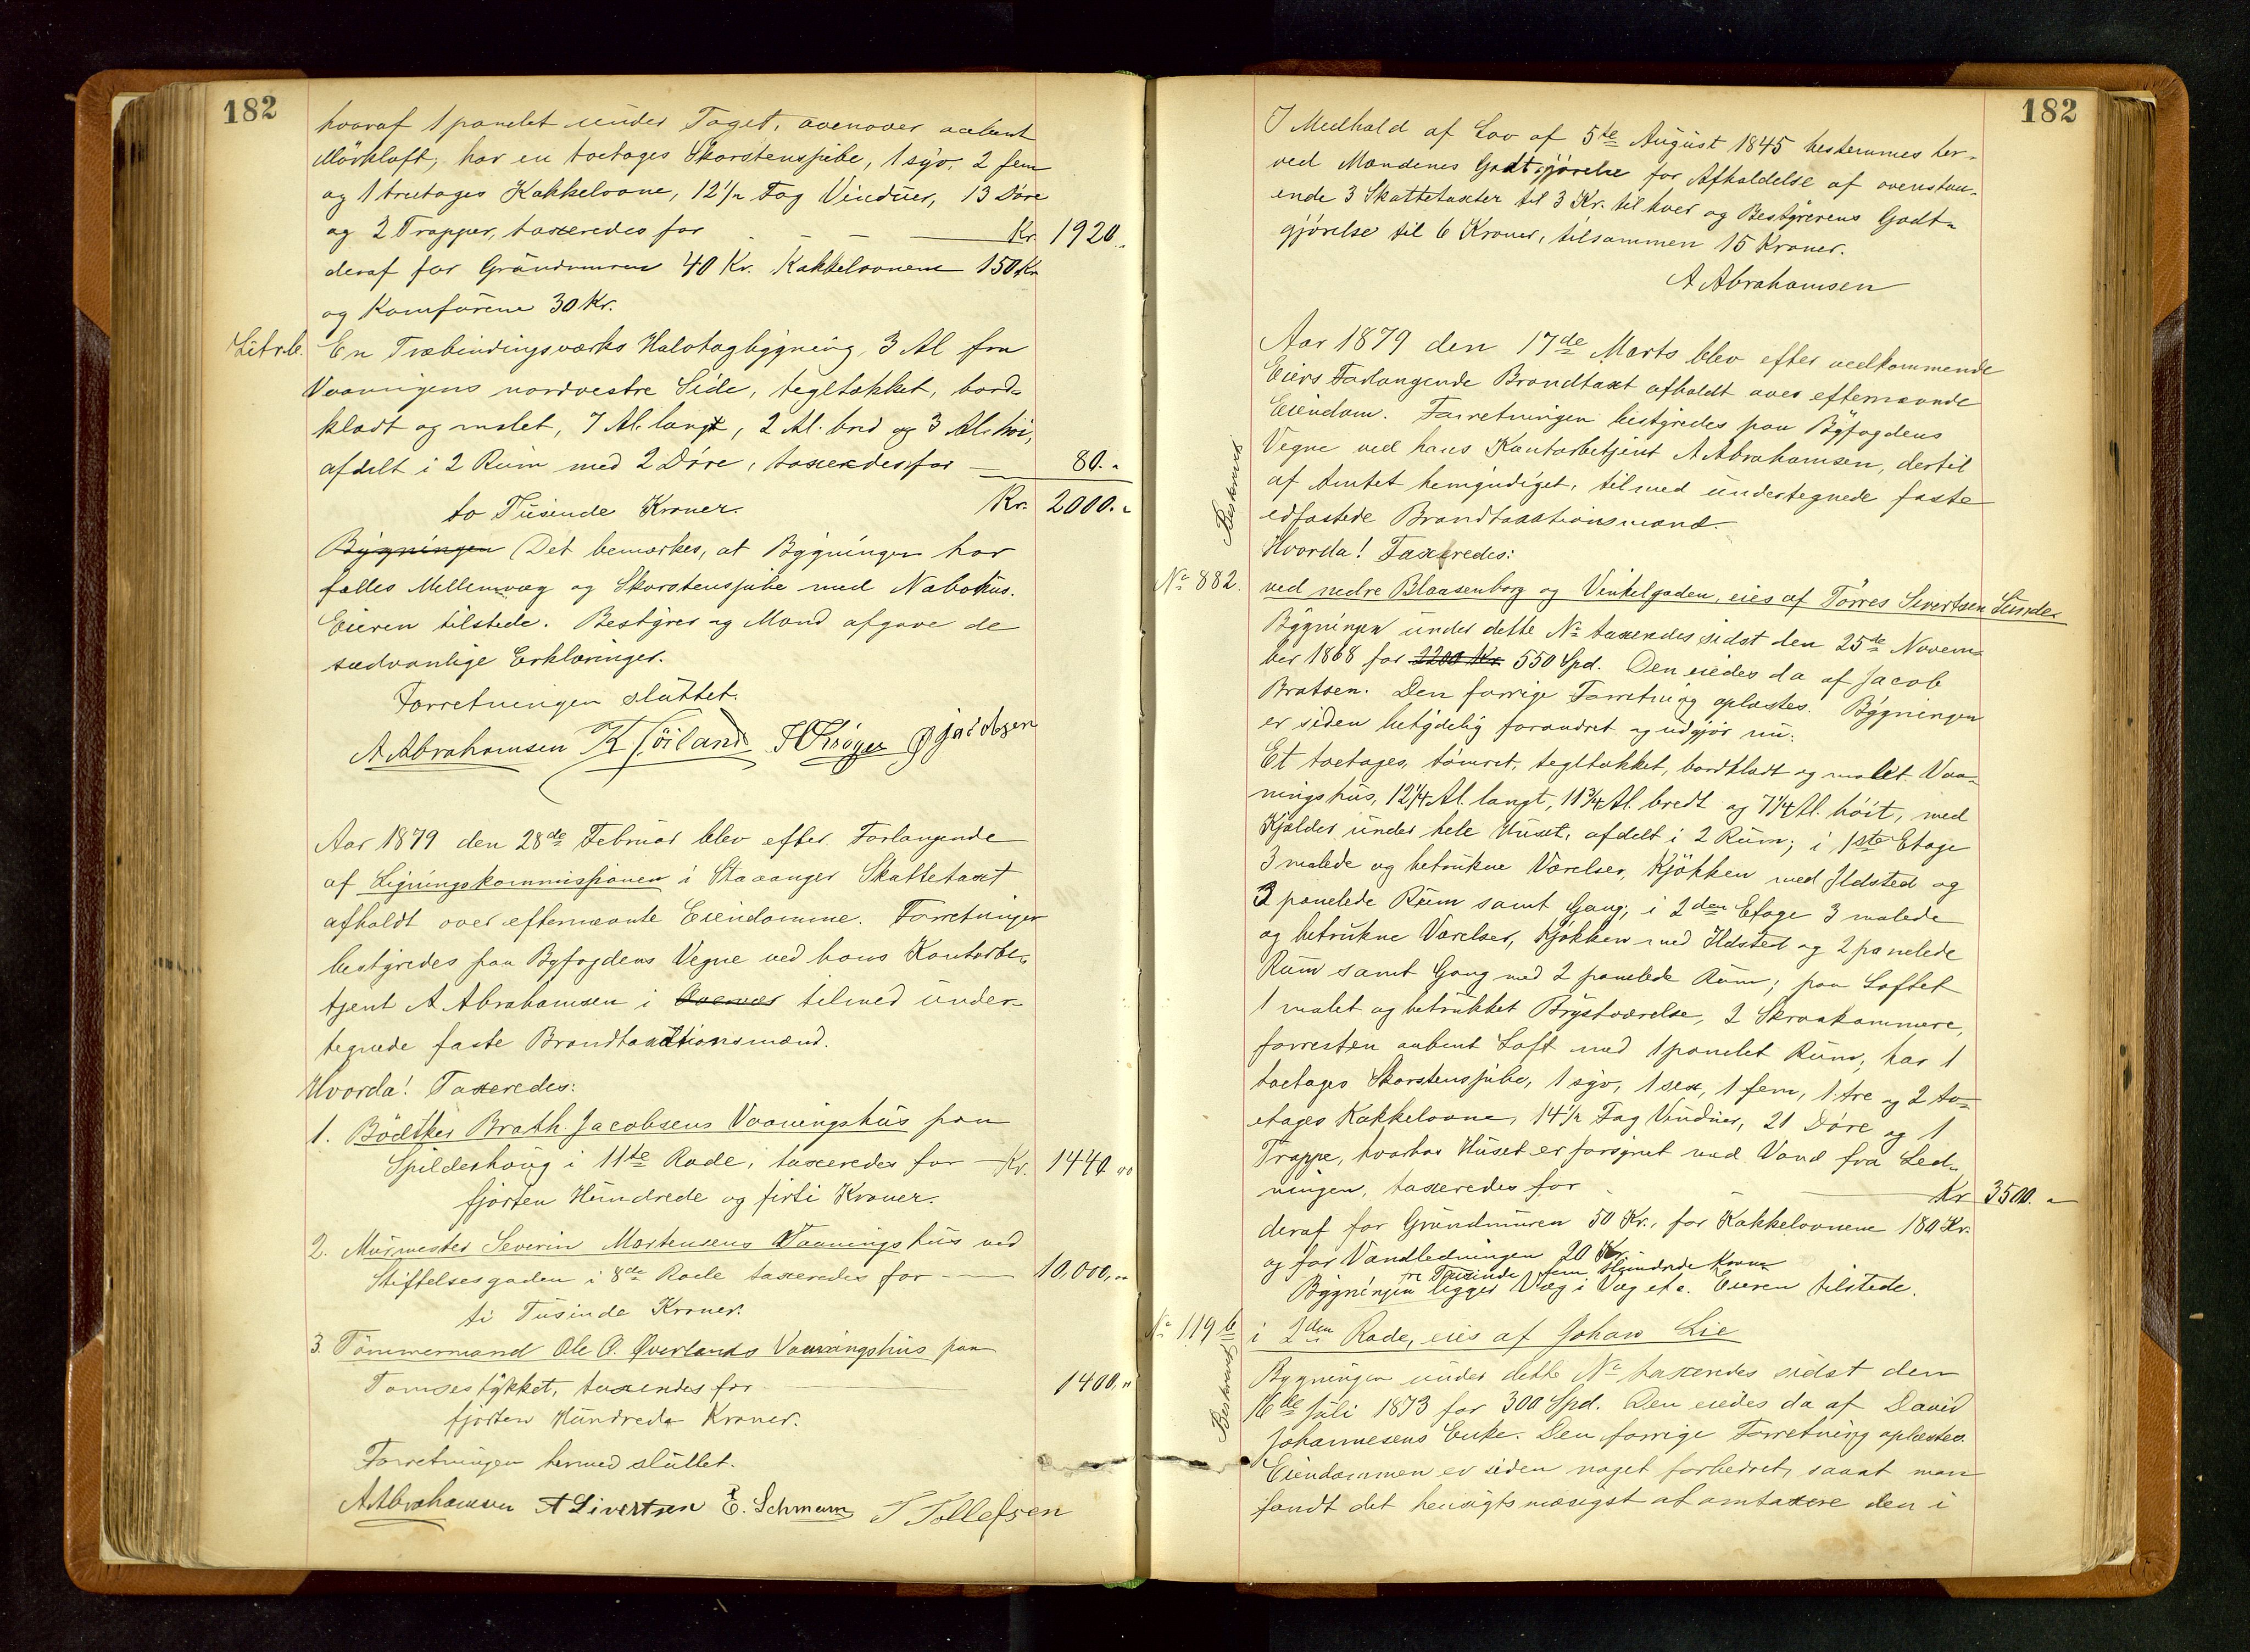 182
hvoraf 1 panelet under Taget, ovenover aabent
Mörkloft, har en toetages Skorstenspibe, 1 syv, 2 fem
og 1 treetages Kakkelovne, 12 1/2 Fag Vinduer, 13 Döre
og 2 Trapper, taxeredes for — — Kr. 1920 ..
deraf for Grundmuren 40 Kr. Kakkelovnene 150 Kr.
og Komfurene 30 Kr.
Litr. b. En Træbindingsværks Halvtagbygning, 3 Al fra
Vaaningens nordvestre Side, tegltækket, bord-
klædt og malet, 7 Al. langt, 2 Al. bred og 3 Al. höi,
afdelt i 2 Rum med 2 Döre, taxeredes for — 80. "
to Tusinde Kroner. Kr. 2000. "
Bygningen Det bemærkes, at Bygningen har
fælles Mellemvæg og Skorstenspibe med Nabohus.
Eieren tilstede. Bestyrer og Mænd afgave de
sædvanlige Erklæringer.
Forretningen sluttet.
A Abrahamsen K Höiland Jacobsen
Aar 1879 den 28de Februar blev efter Forlangende
af Ligningskommissionen i Stavanger Skattetaxt
afholdt over efternævnte Eiendomme. Forretningen
bestyredes paa Byfogdens Vegne ved hans Kontorbe-
tjent A Abrahamsen i Overvær tilmed under-
tegnede faste Brandtaxationsmænd.
Hvorda! Taxeredes:
1. Bödtker Brath. Jacobsens Vaaningshus paa
Spilderhaug i 11te Rode, taxeredes for — Kr. 1440. 00
fjorten Hundrede og firti Kroner.
2. Murmester Severin Mortensens Vaaningshus ved
Stiftelsesgaden i 8de Rode taxeredes for — 10,000, "
ti Tusinde Kroner.
3. Tömmermand Ole O. Överlands Vaaningshus paa
Tomsestykket, taxeredes for 1400, "
fjorten Hundrede Kroner.
Forretningen hermed sluttet.
A Abrahamsen A Sivertsen E. Schmem T Tollefsen
182
I Medhold af Lov af 5te August 1845 bestemmes her-
ved Mændenes Godtgjörelse for Afholdelse af ovenstaa-
ende 3 Skattetaxter til 3 Kr. til hver og Bestyrerens Godt-
gjörelse til 6 Kroner, tilsammen 15 Kroner.
A Abrahamsen
Aar 1879 den 17de Marts blev efter vedkommende
Eiers Forlangende Brandtaxt afholdt over efternævnte
Eiendom. Forretningen bestyredes paa Byfogdens
Vegne ved hans Kontorbetjent A Abrahamsen, dertil
af Amtet bemyndiget, tilmed undertegnede faste
edfæstede Brandtaxationsmænd.
Hvorda! Taxeredes:
Beskrevet
No 882. ved nedre Blaasenborg og Vinkelgaden, eies af Törres Sivertsen Sunde.
Bygningen under dette No taxeredes sidst den 25de Novem-
ber 1868 for 2200 Kr. 550 Spd. Den eiedes da af Jacob
Bratsen. Den forrige Forretning oplæstes. Bygningen
er siden betydelig forandret og udgjör nu:
Et toetages, tömret, tegltækket, bordklædt og malet Vaa-
ningshus, 12 1/4 Al. langt, 11 3/4 Al. bredt og 7 1/4 Al. höit, med
Kjælder under hele Huset, afdelt i 2 Rum; i 1ste Etage
3 malede og betrukne Værelser, Kjökken med Ildsted og
3 panelede Rum samt Gang; i 2den Etage 3 malede
og betrukne Værelser, Kjökken med Ildsted og 2 panelede
Rum samt Gang med 2 panelede Rum; paa Loftet
1 malet og betrukket Brystværelse, 2 Skraakammere,
forresten aabent Loft med 1 panelet Rum, har 1
toetages Skorstenspibe, 1 syv, 1 sex, 1 fem, 1 tre og 2 to-
etages Kakkelovne, 14 1/2 Fag Vinduer, 21 Döre og 1
Trappe, hvorhos Huset er forsynet med Vand fra Led-
ningen, taxeredes for — Kr 3500. "
deraf for Grundmuren 50 Kr., for Kakkelovnene 180 Kr.
og for Vandledningen 20 Kr.
tre Tusinde fem Hundrede Kroner
Bygningen ligger Væg i Væg etc. Eieren tilstede.
No 119 b i 2den Rode, eies af Johan Lie
Beskrevet
Bygningen under dette No taxeredes sidst den
16de Juli 1873 for 300 Spd. Den eiedes da af David
Johannesens Enke. Den forrige Forretning oplæstes.
Eiendommen er siden noget forbedret, saaat man
fandt det hensigtsmæssigst at omtaxere den i